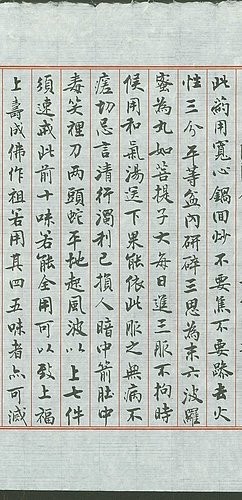 此药用寬心鍋內炒不要焦不要躁去火
性三分平等盆內研碎三思為末六波羅
蜜為丸如菩提子大每日進三服不拘時
候用和氣湯送下果能依此服之無病不
瘥切忌言清行濁利己損人暗中箭肚中
毒笑裡刀兩頭蛇平地起風波以上七件
須速戒此前十味若能全用可以致上福
上壽成佛作祖若用其四五味者亦可滅